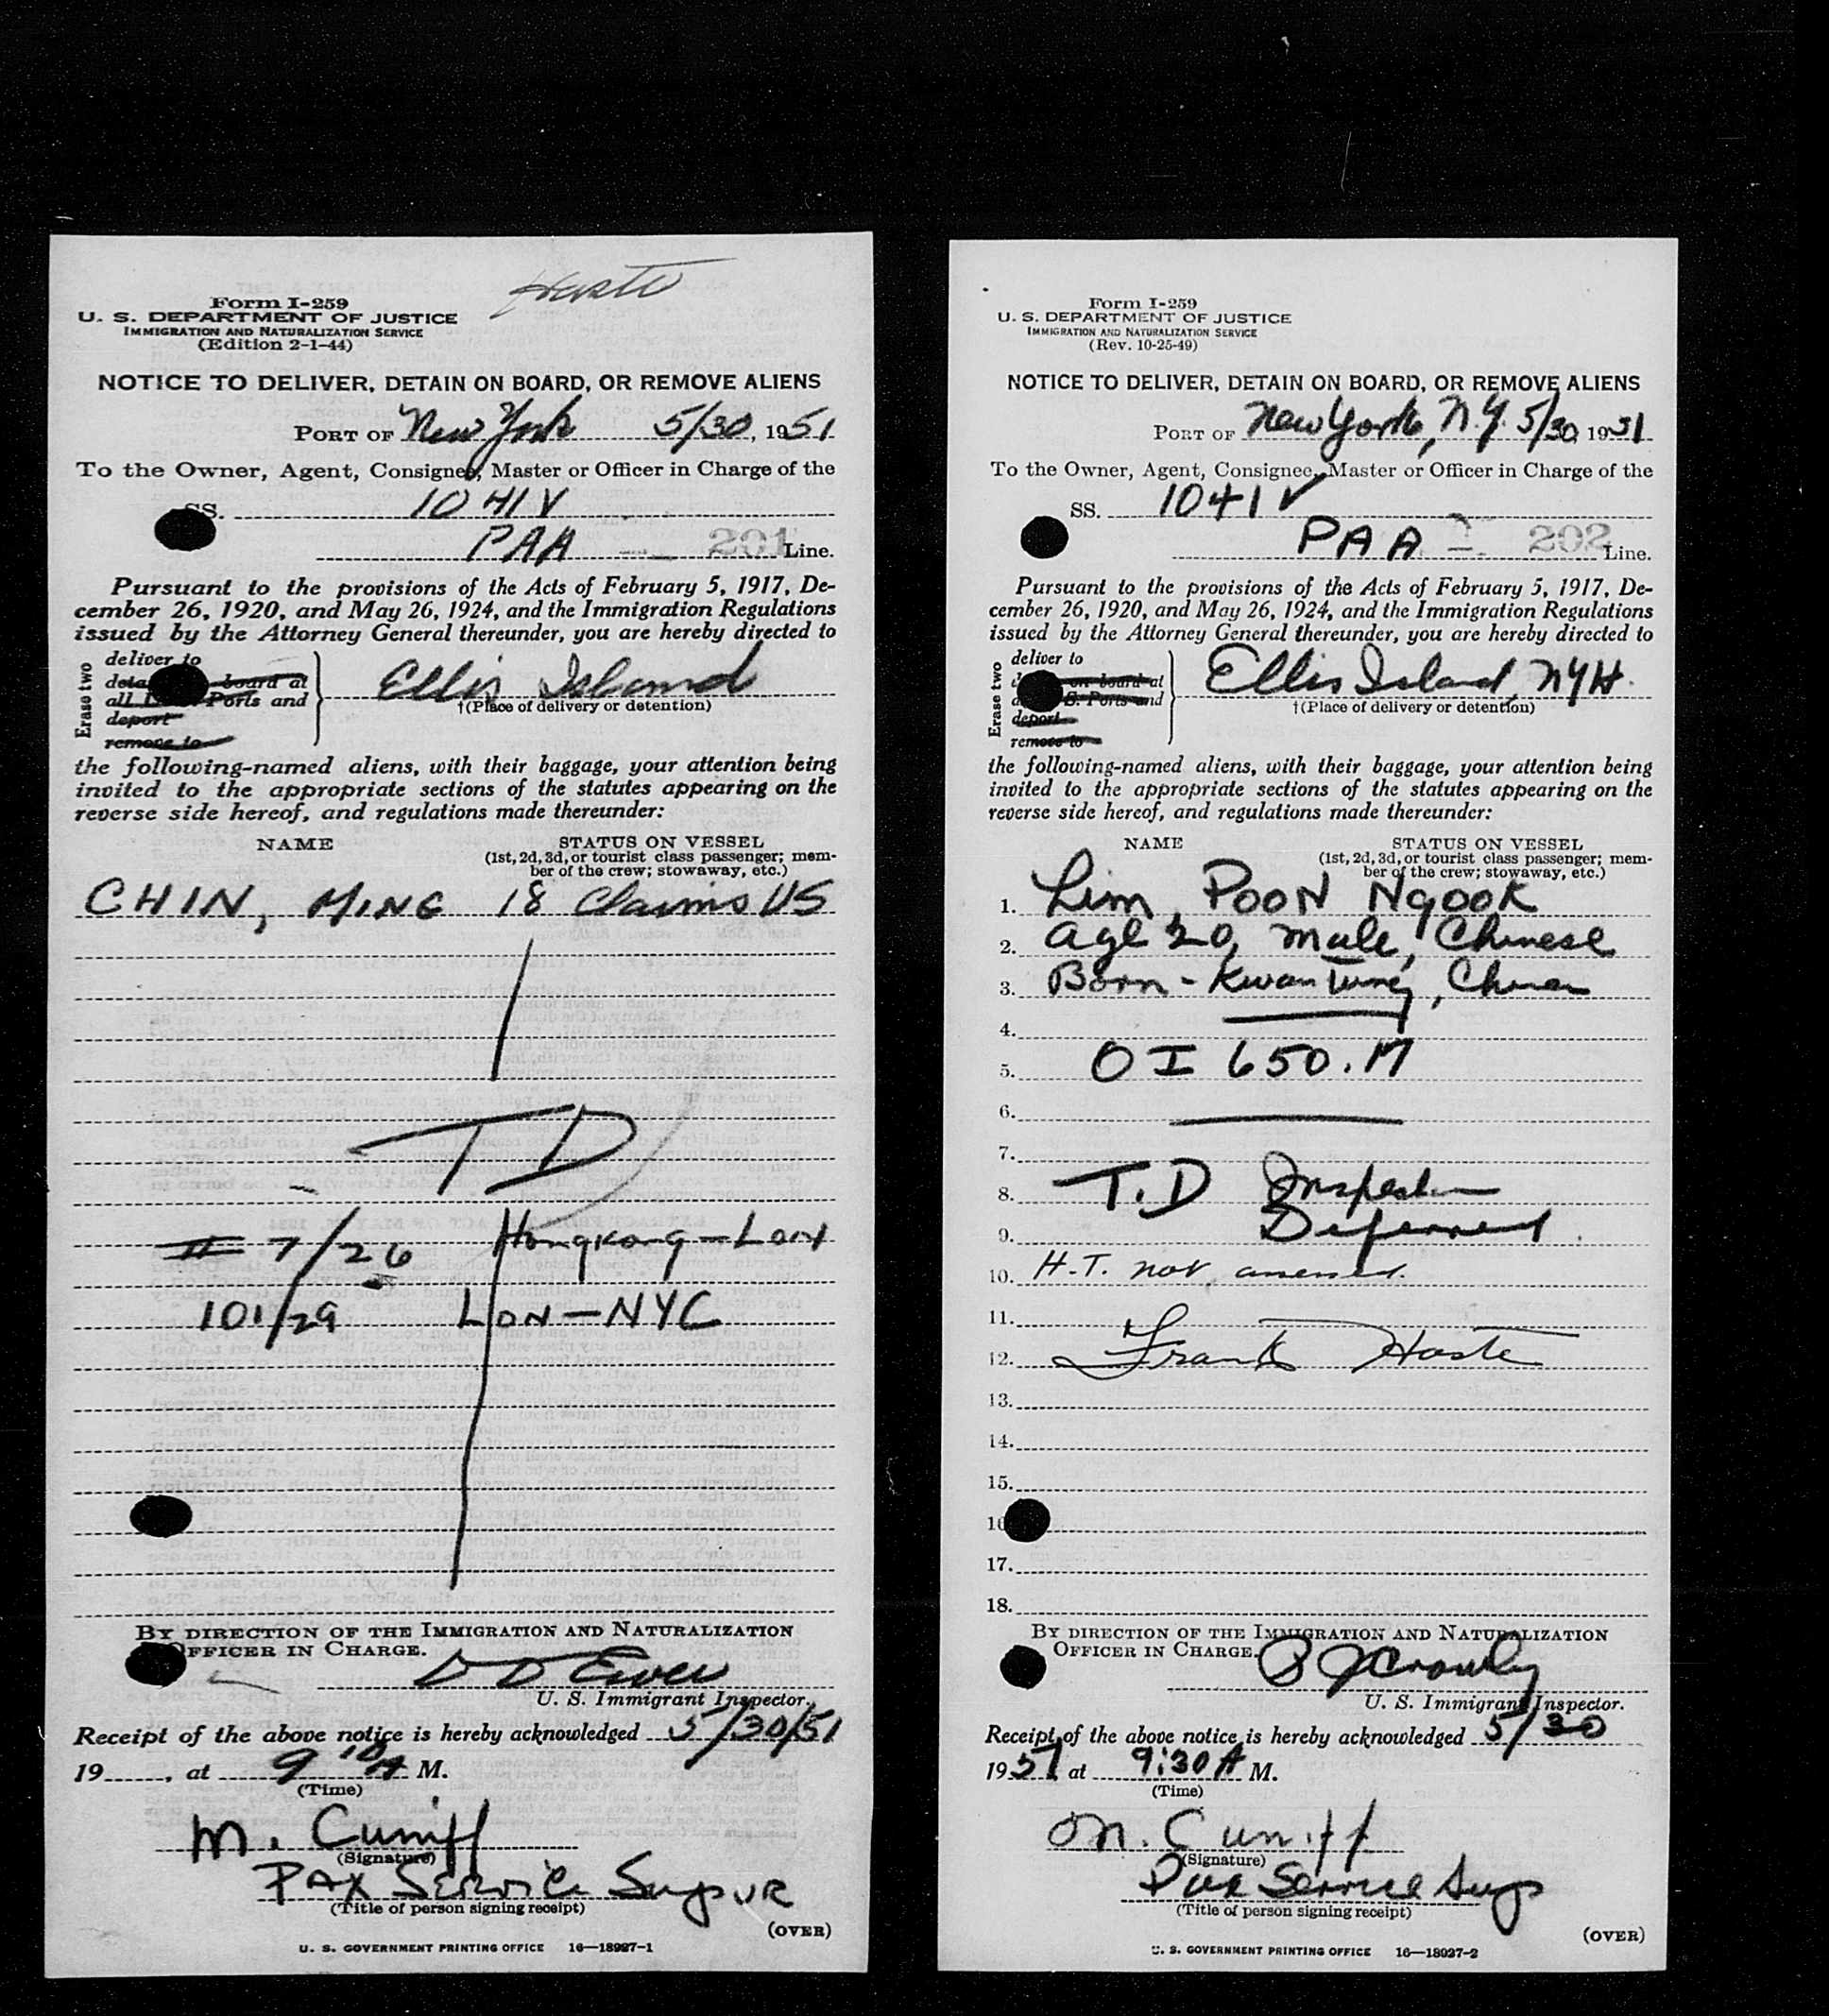 Haste
Form I-259
U. S. DEPARTMENT OF JUSTICE
IMMIGRATION AND NATURALIZATION SERVICE
(Edition 2-1-44)
NOTICE TO DELIVER, DETAIN ON BOARD, OR REMOVE ALIENS
PORT OF New York 5/30, 1951
To the Owner, Agent, Consignee, Master or Officer in Charge of the
SS. 1041V
PAA 201 Line.
Pursuant to the provisions of the Acts of February 5, 1917, De-
cember 26, 1920, and May 26, 1924, and the Immigration Regulations
issued by the Attorney General thereunder, you are hereby directed to
Erase two
deliver to
board at
all Ports and
deport
remove to
Ellis Island
†(Place of delivery or detention)
the following-named aliens, with their baggage, your attention being
invited to the appropriate sections of the statutes appearing on the
reverse side hereof, and regulations made thereunder:
NAME STATUS ON VESSEL
(1st, 2d, 3d, or tourist class passenger; mem-
ber of the crew; stowaway, etc.)
CHIN, MING 18 Claims US
TD
# 7/26 Hongkong - Lon
101/29 LON - NYC
BY DIRECTION OF THE IMMIGRATION AND NATURALIZATION
OFFICER IN CHARGE.
D D
U. S. Immigrant Inspector.
Receipt of the above notice is hereby acknowledged 5/30/51
19 , at 9 10 A M.
(Time)
M. Cuniff
(Signature)
PAX Service Supvr
(Title of person signing receipt)
(OVER)
U. S. GOVERNMENT PRINTING OFFICE 16—18927-1
Form I-259
U. S. DEPARTMENT OF JUSTICE
IMMIGRATION AND NATURALIZATION SERVICE
(Rev. 10-25-49)
NOTICE TO DELIVER, DETAIN ON BOARD, OR REMOVE ALIENS
PORT OF New York, N.Y. 5/30 1951
To the Owner, Agent, Consignee, Master or Officer in Charge of the
SS. 1041V
PAA 202 Line.
Pursuant to the provisions of the Acts of February 5, 1917, De-
cember 26, 1920, and May 26, 1924, and the Immigration Regulations
issued by the Attorney General thereunder, you are hereby directed to
Erase two
deliver to
on board at
S. Ports and
deport
remove to
Ellis Island, NYH.
†(Place of delivery or detention)
the following-named aliens, with their baggage, your attention being
invited to the appropriate sections of the statutes appearing on the
reverse side hereof, and regulations made thereunder:
NAME STATUS ON VESSEL
(1st, 2d, 3d, or tourist class passenger; mem-
ber of the crew; stowaway, etc.)
1. Lim, POON NgOOK
2. Age 20, male, Chinese
3. Born - Kwantung, China
4.
5. OI 650.17
6.
7.
8. T.D Inspection
9. Deferred.
10. H.T. not
11.
12. Frank Haste
13.
14.
15.
16
17.
18.
BY DIRECTION OF THE IMMIGRATION AND NATURALIZATION
OFFICER IN CHARGE. P J Crowley
U. S. Immigrant Inspector.
Receipt of the above notice is hereby acknowledged 5/30
1951 at 9:30 A M.
(Time)
M. Cuniff
(Signature)
Pax Service Sup
(Title of person signing receipt)
(OVER)
U. S. GOVERNMENT PRINTING OFFICE 16—18927-2